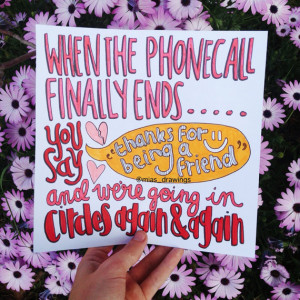 WHEN THE PHONECALL
FINALLY ENDS.....
YOU SAY
"thanks for
being a
friend"
@mias_drawings
and we're going in
circles again & again